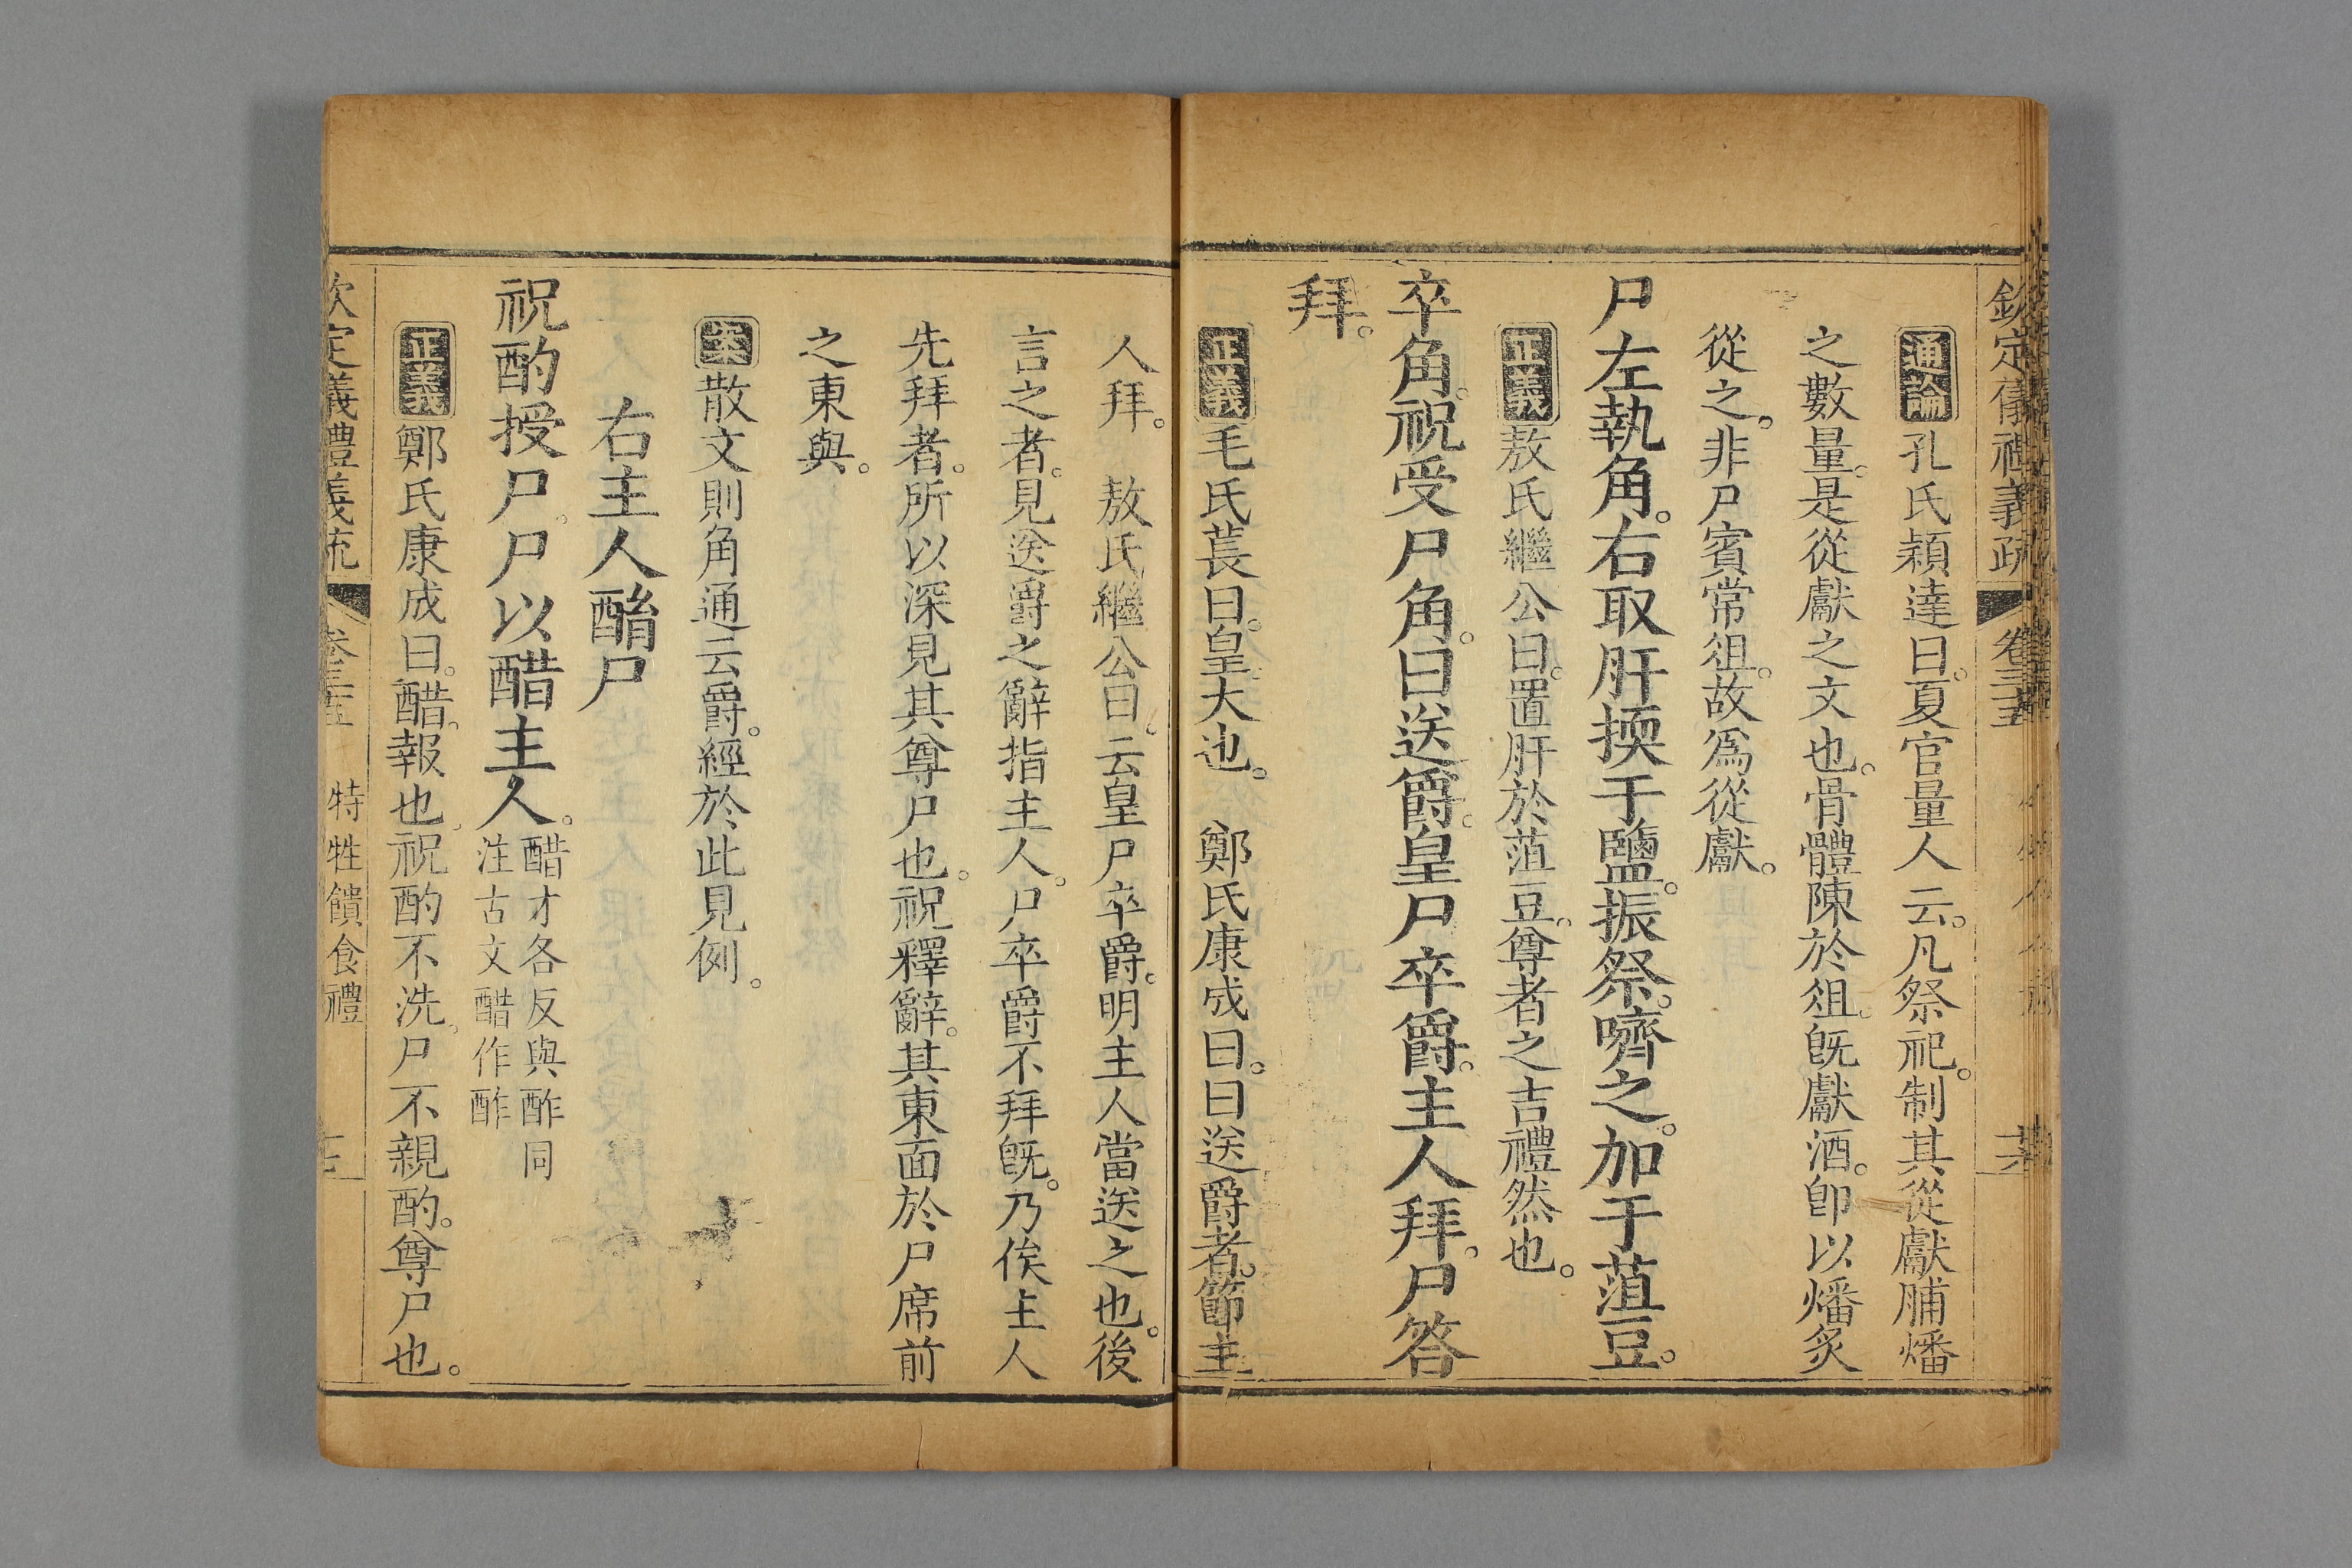 欽定儀禮義疏 卷三十五
通論孔氏穎達曰。夏官量人云。凡祭祀。制其從獻脯燔
之數量。是從獻之文也。骨體陳於俎。旣獻酒。卽以燔炙
從之。非尸賓常俎。故爲從獻。
尸左執角。右取肝擩于鹽。振祭。嚌之。加于菹豆。
正義敖氏繼公曰。置肝於菹豆。尊者之吉禮然也。
卒角。祝受尸角。曰送爵。皇尸卒爵。主人拜。尸答
拜。
正義毛氏萇曰。皇大也。 鄭氏康成曰。曰送爵者。節主
人拜。 敖氏繼公曰。云皇尸卒爵。明主人當送之也。後
言之者。見送爵之辭指主人。尸卒爵不拜旣。乃俟主人
先拜者。所以深見其尊尸也。祝釋辭。其東面於尸席前
之東與。
案散文則角通云爵。經於此見例。
右主人酳尸
祝酌授尸。尸以醋主人。醋才各反與酢同
注古文醋作酢
正義鄭氏康成曰。醋。報也。祝酌不洗。尸不親酌。尊尸也。
欽定儀禮義疏 卷三十五 特牲饋食禮